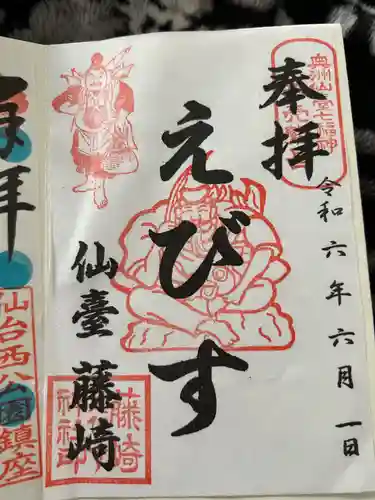 奉拝
奥州仙臺七福神
令和六年六月一日
えびす
仙臺
藤崎
拝
仙台西公園鎮座